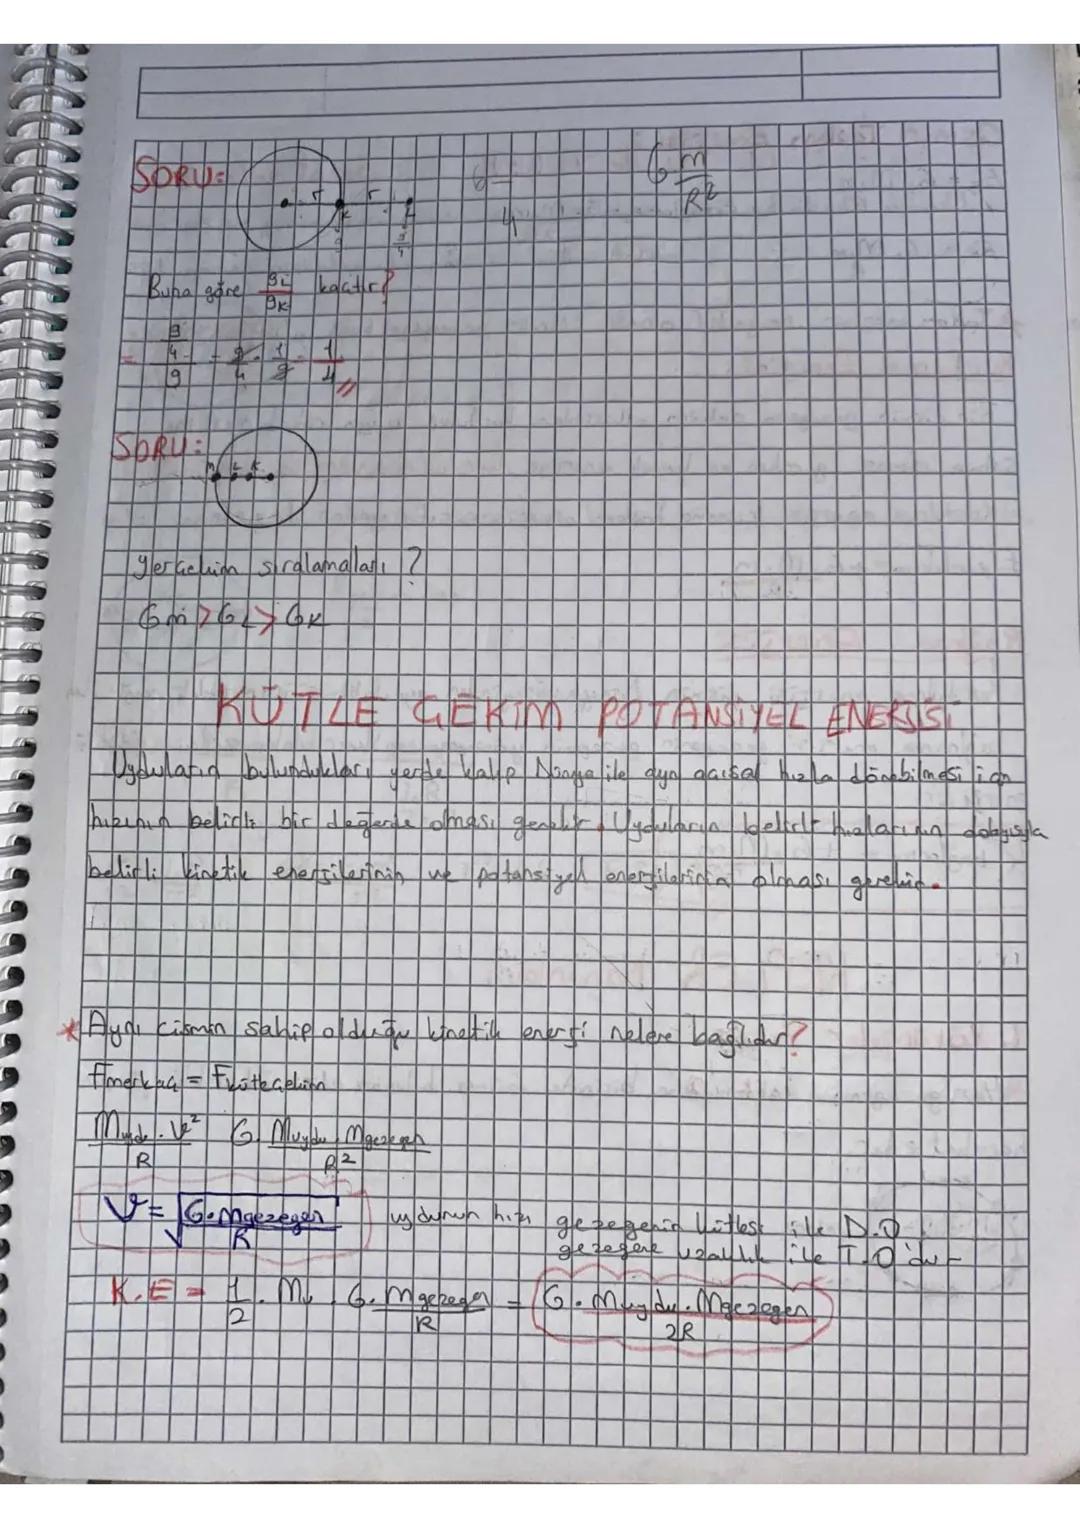 SORU:
r r
K L
g g/4
G m/R²
4
Buna göre gL/gK kaçtır?
= g/4 / g = g/4 . 1/g = 1/4 //
SORU:
M L K
Yerçekim sıralamaları ?
Gm > GL > GK
KÜTLE ÇEKİM POTANSİYEL ENERJİSİ
Uyduların bulundukları yerde kalıp Dünya ile aynı açısal hızla dönebilmesi için
hızının belirli bir değerde olması gerekir. Uyduların belirli hızlarının dolayısıyla
belirli kinetik enerjilerinin ve potansiyel enerjilerinin olması gerekir.
* Aynı cismin sahip olduğu kinetik enerji nelere bağlıdır?
Fmerkzç = Fkütleçekim
Muydu . V²/R G. Muydu . Mgezegen/R²
V = √G.Mgezegen/R uydunun hızı gezegenin kütlesi ile D.O
gezegene uzaklık ile T.O'dur
K.E = 1/2 . M. G. Mgezegen/R = G. Muydu . Mgezegen/2R